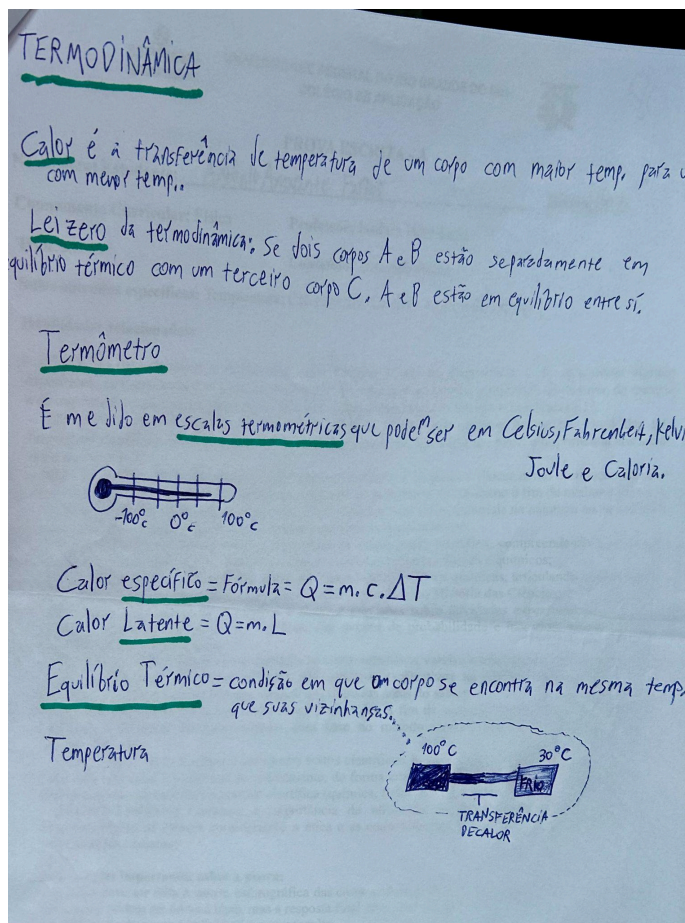 TERMODINÂMICA
Calor é a transferência de temperatura de um corpo com maior temp. para u
com menor temp..
Lei zero da termodinâmica: Se dois corpos A e B estão separadamente em
quilíbrio térmico com um terceiro corpo C, A e B estão em equilíbrio entre sí.
Termômetro
É medido em escalas termométricas que podem ser em Celsius, Fahrenheit, Kelvi
Joule e Caloria.
-100°c 0°c 100°c
Calor específico = Fórmula = Q = m. c. ΔT
Calor Latente = Q = m. L
Equilíbrio Térmico = condição em que um corpo se encontra na mesma temp.
que suas vizinhanças.
Temperatura
100°C 30°C
FRIO
TRANSFERÊNCIA
DE CALOR